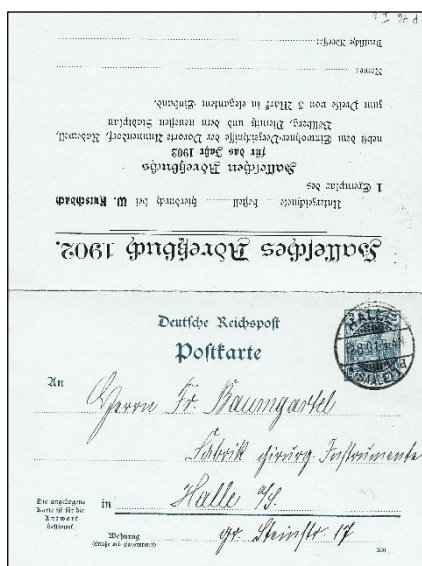 Hallesches Adreßbuch 1902.
Unterzeichnete ........ bestell ........ hierdurch bei W. Kutschbach
1 Exemplar des
Halleschen Adreßbuchs
für das Jahr 1902
nebst dem Einwohner-Verzeichniß der Vororte Ammendorf, Radewell,
Böllberg, Diemitz und dem neuesten Stadtplan
zum Preise von 5 Mark in elegantem Einband.
Name:
Deutliche Adresse:
Deutsche Reichspost
Postkarte
HALLE
An
Herrn Fr. Baumgartel
Fabrik chirurg. Instrumente
Die angebogene
Karte ist für die
Antwort
bestimmt.
in Halle a/S.
Wohnung
(Straße und Hausnummer)
gr. Steinstr. 17